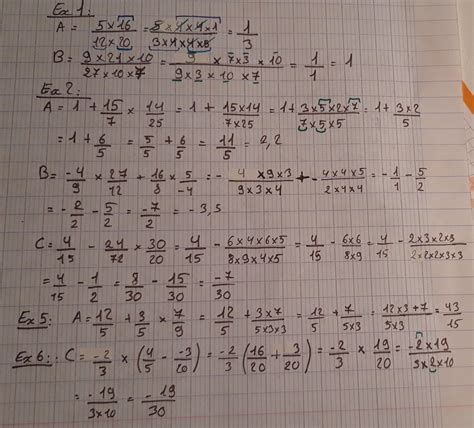 Ex 1:
A = 5×16/12×20 = 5×4×4×1/3×4×4×5 = 1/3
B = 9×21×10/27×10×7 = 9×7×3×10/9×3×10×7 = 1/1 = 1
Ex 2:
A = 1 + 15/7 × 14/25 = 1 + 15×14/7×25 = 1 + 3×5×2×7/7×5×5 = 1 + 3×2/5
= 1 + 6/5 = 5/5 + 6/5 = 11/5 = 2,2
B = -4/9 × 27/12 + 16/8 × 5/-4 = - 4×9×3/9×3×4 + - 4×4×5/2×4×4 = - 1/1 - 5/2
= - 2/2 - 5/2 = -7/2 = - 3,5
C = 4/15 - 24/72 × 30/20 = 4/15 - 6×4×6×5/8×9×4×5 = 4/15 - 6×6/8×9 = 4/15 - 2×3×2×3/2×2×2×3×3
= 4/15 - 1/2 = 8/30 - 15/30 = -7/30
Ex 5: A = 12/5 + 3/5 × 7/9 = 12/5 + 3×7/5×3×3 = 12/5 + 7/5×3 = 12×3+7/5×3 = 43/15
Ex 6: C = -2/3 × (4/5 - -3/20) = -2/3 (16/20 + 3/20) = -2/3 × 19/20 = -2×19/3×2×10
= -19/3×10 = -19/30